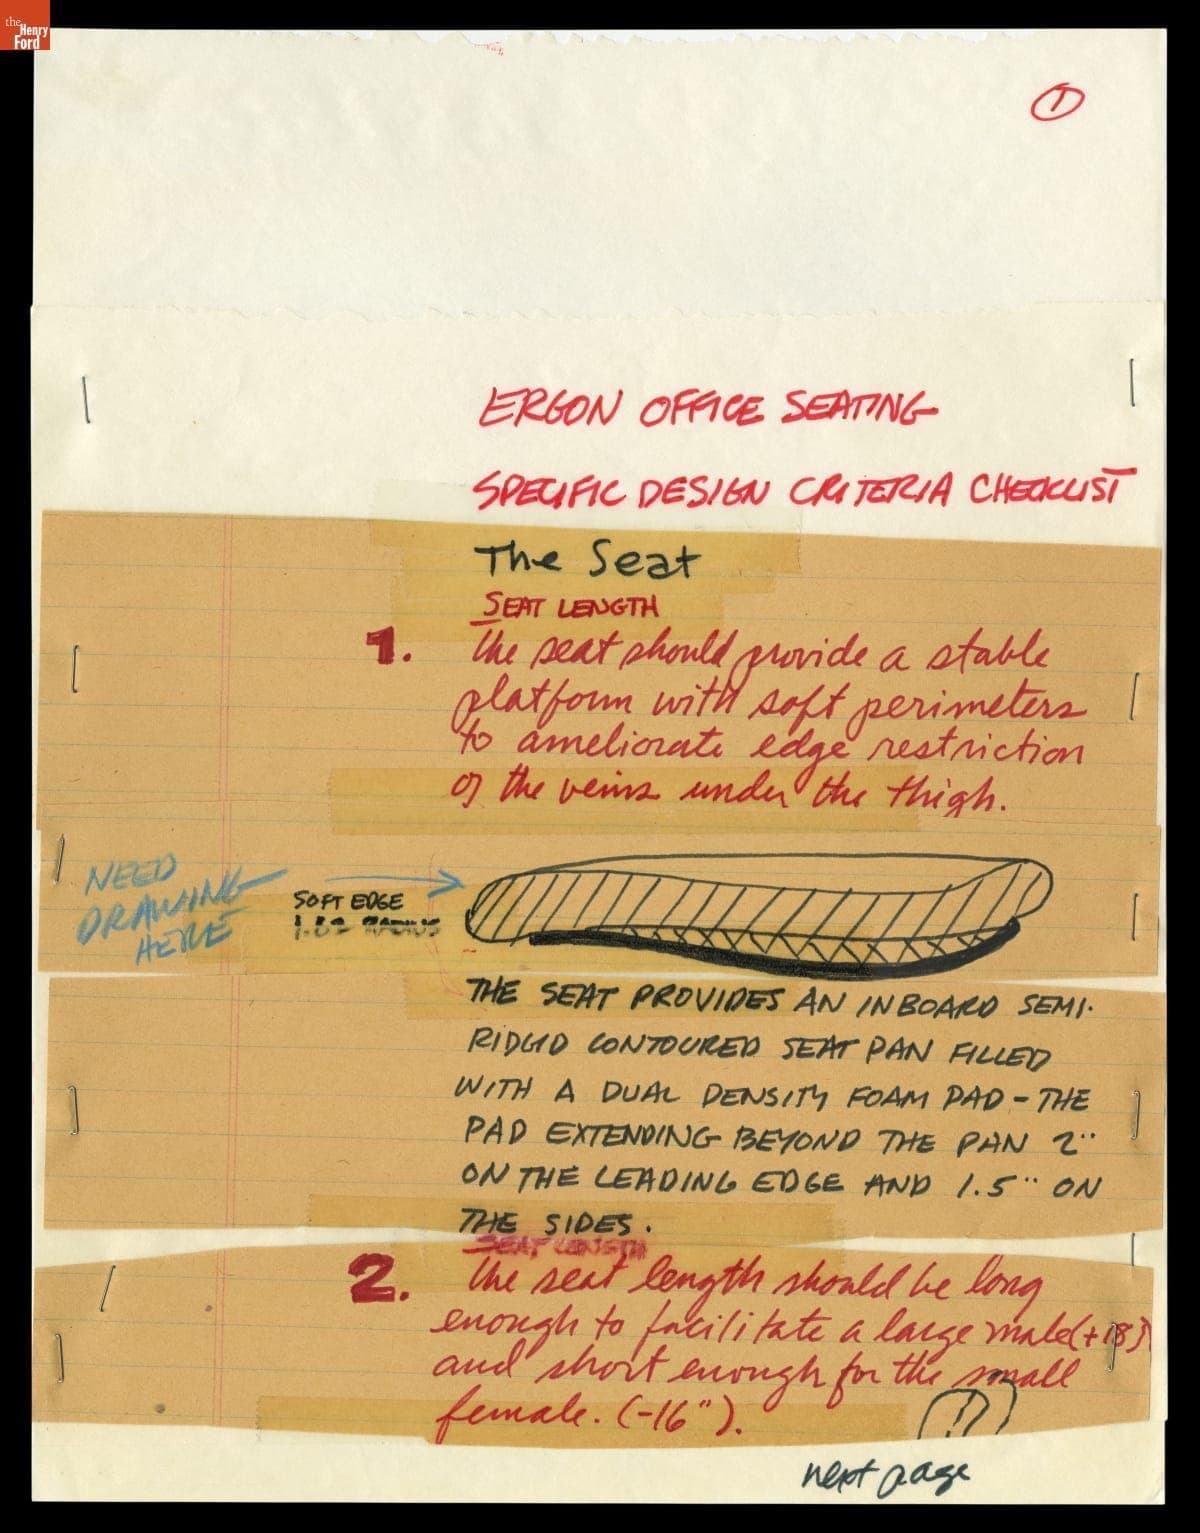 the
Henry
Ford
1
ERGON OFFICE SEATING
SPECIFIC DESIGN CRITERIA CHECKLIST
The Seat
SEAT LENGTH
1. The seat should provide a stable
platform with soft perimeters
to ameliorate edge restriction
of the veins under the thigh.
NEED
DRAWING
HERE
SOFT EDGE
RADIUS
THE SEAT PROVIDES AN INBOARD SEMI-
RIDGID CONTOURED SEAT PAN FILLED
WITH A DUAL DENSITY FOAM PAD - THE
PAD EXTENDING BEYOND THE PAN 2"
ON THE LEADING EDGE AND 1.5" ON
THE SIDES.
SEAT LENGTH
2. The seat length should be long
enough to facilitate a large male (+18)
and short enough for the small
female. (-16").
next page